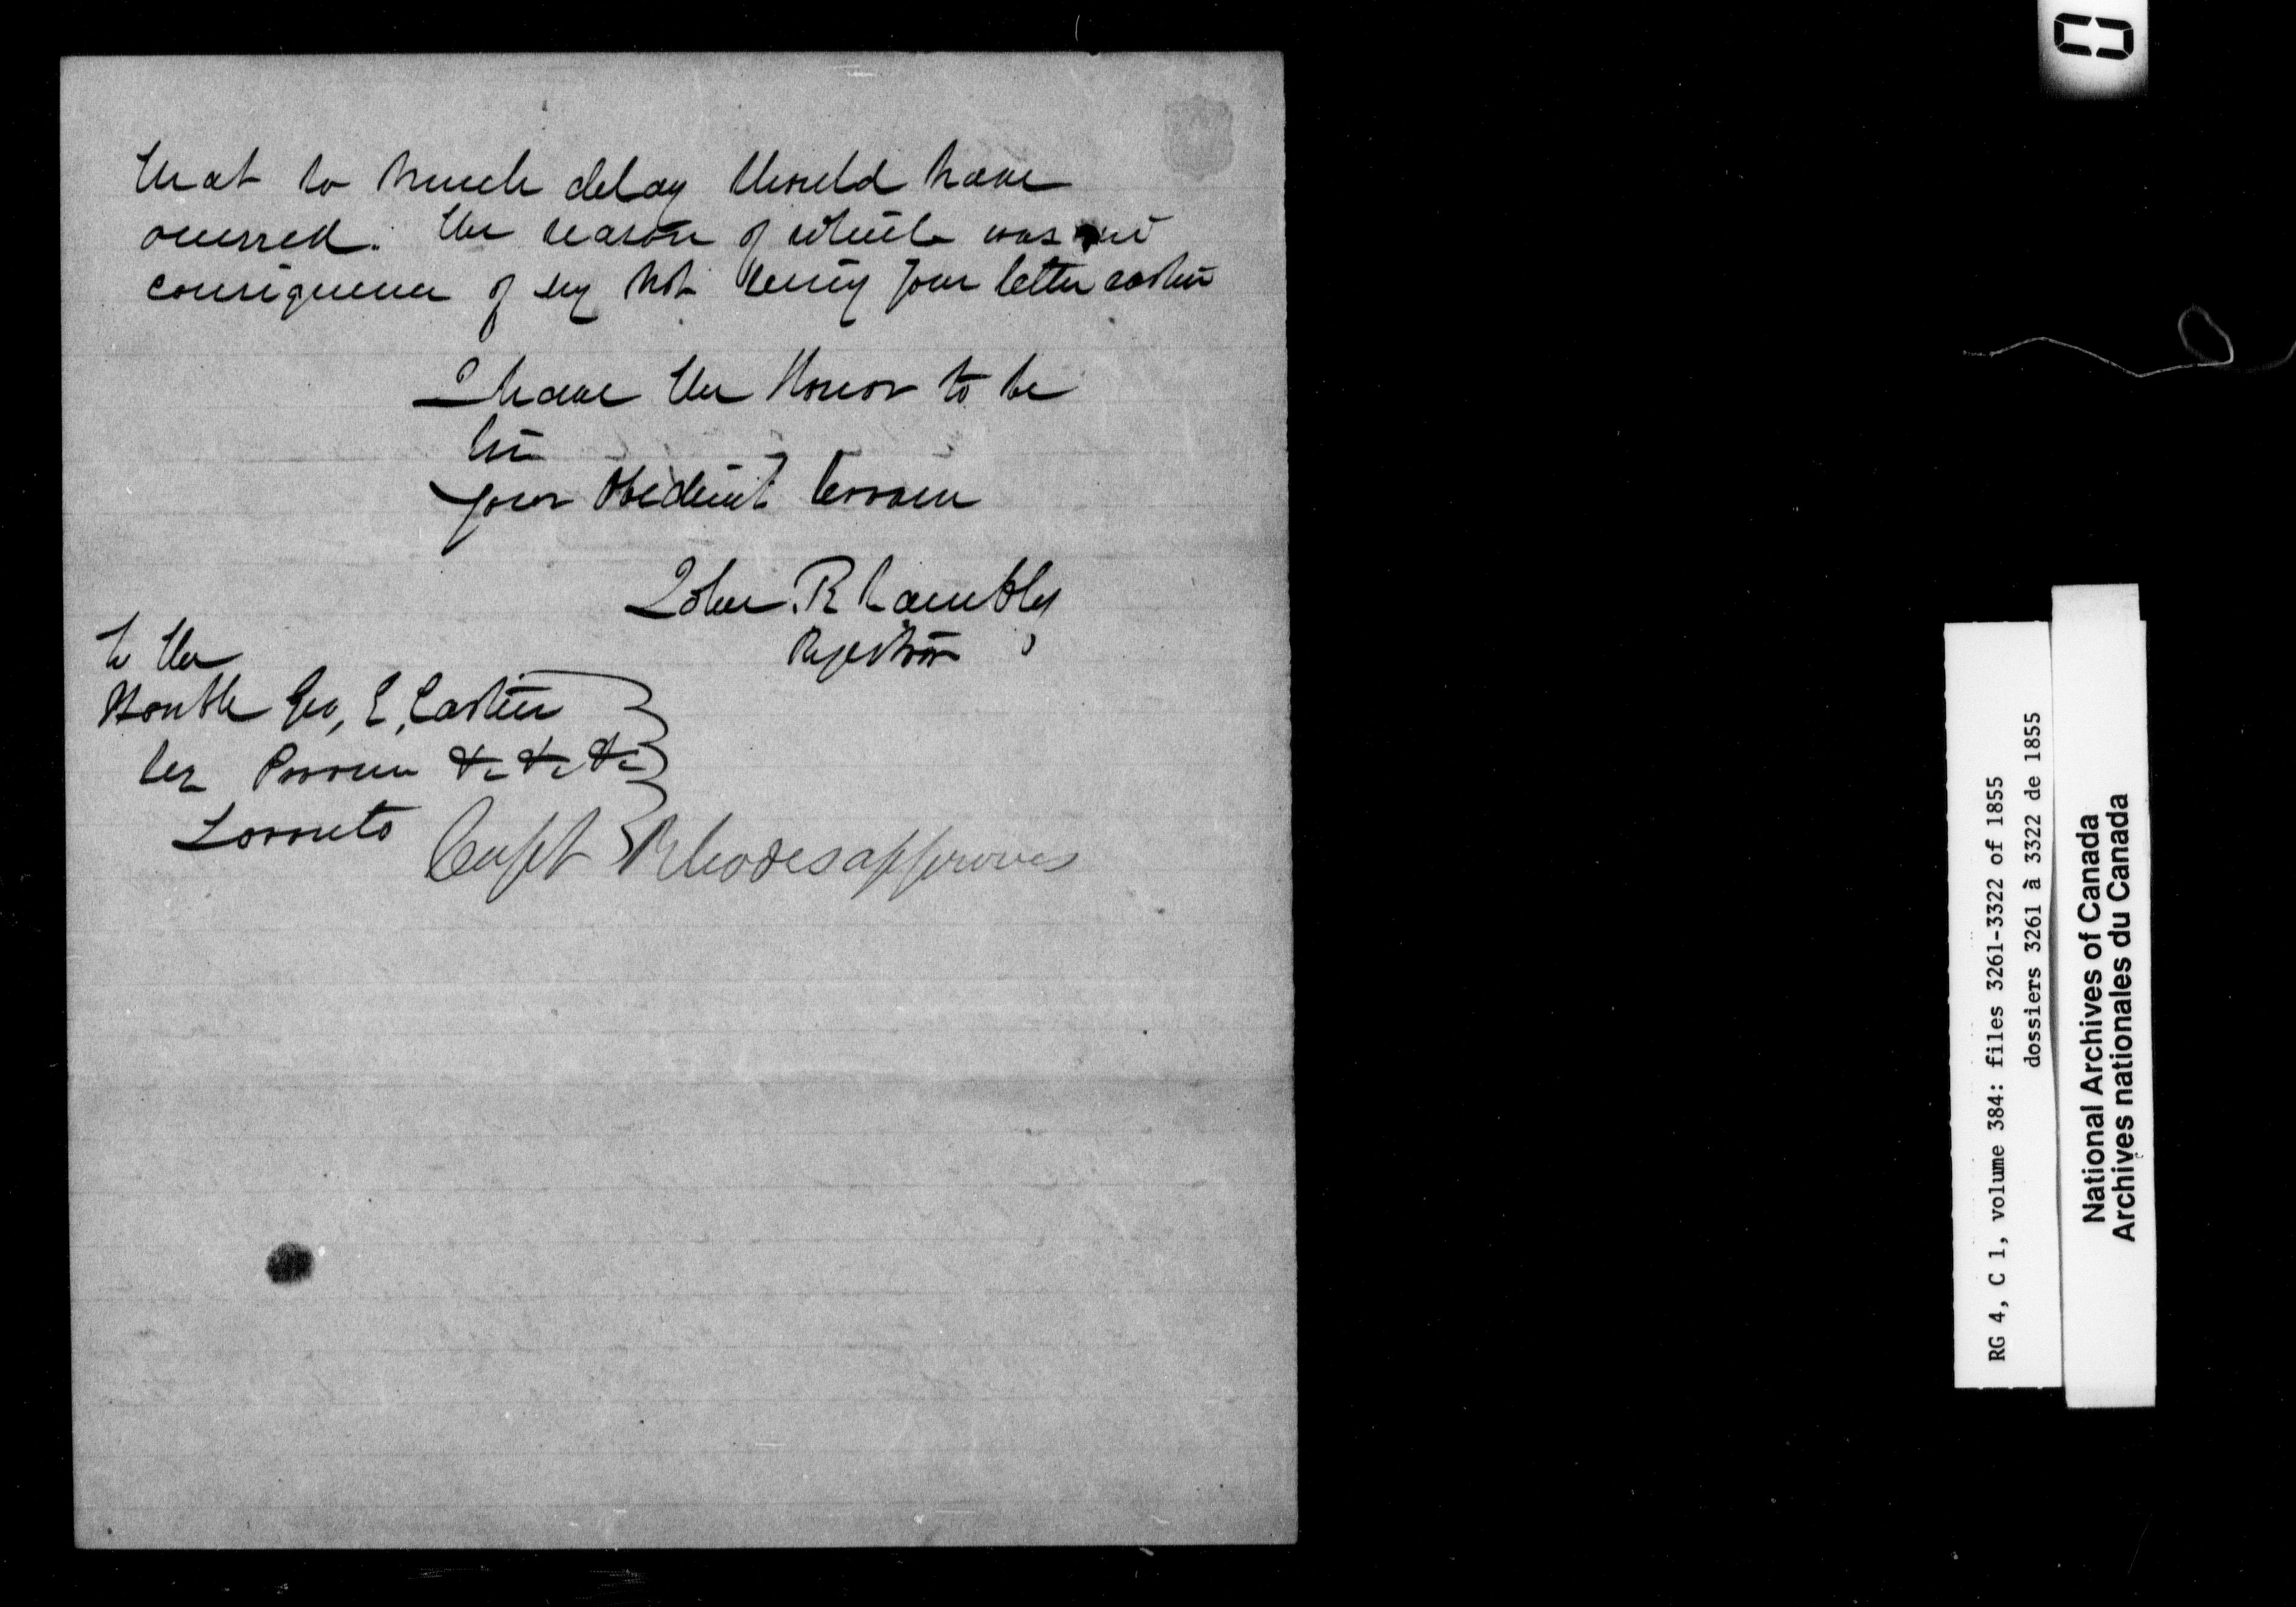 that so much delay should have
occurred. The reason of which was in
consequence of my not seeing your letter earlier
I have the Honor to be
Sir
your Obedient Servant
John R Lambly
Registrar
To the
Honble Geo, E, Cartier
Sec Provin &c &c &c
Toronto
Capt Rhodes approves
RG 4, C 1, volume 384: files 3261-3322 of 1855
dossiers 3261 à 3322 de 1855
National Archives of Canada
Archives nationales du Canada